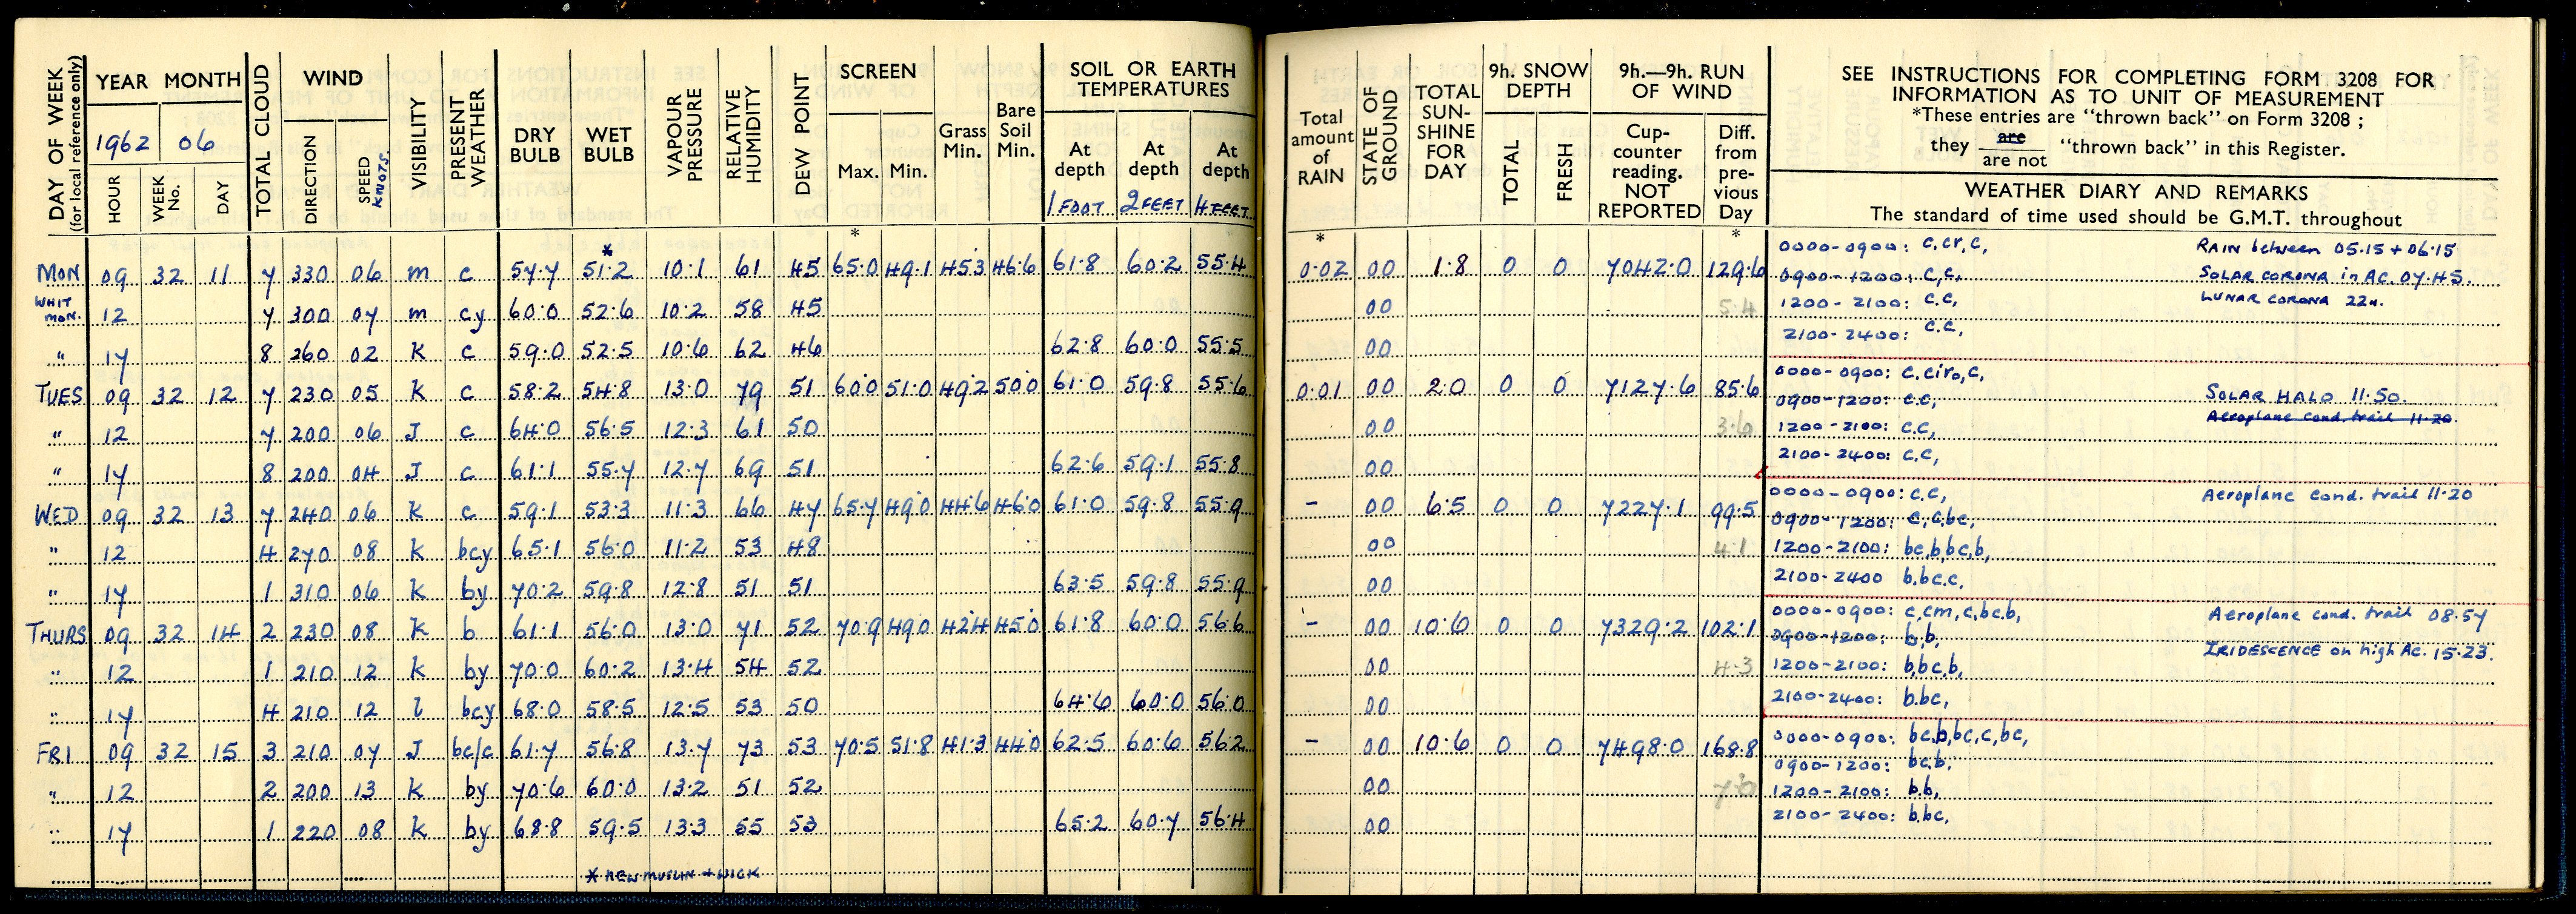 DAY OF WEEK (for local reference only)
YEAR MONTH
1962 06
HOUR WEEK No. DAY
TOTAL CLOUD
WIND
DIRECTION SPEED KNOTS
VISIBILITY
PRESENT WEATHER
DRY BULB
WET BULB
VAPOUR PRESSURE
RELATIVE HUMIDITY
DEW POINT
SCREEN
Max. Min.
Grass Min.
Bare Soil Min.
SOIL OR EARTH TEMPERATURES
At depth At depth At depth
1 FOOT 2 FEET 4 FEET
* *
MON 09 32 11 7 330 06 m c 57.7 51.2 10.1 61 45 65.0 49.1 45.3 46.6 61.8 60.2 55.4
WHIT MON. 12 7 300 07 m cy 60.0 52.6 10.2 58 45
" 17 8 260 02 K c 59.0 52.5 10.6 62 46 62.8 60.0 55.5
TUES 09 32 12 7 230 05 K c 58.2 54.8 13.0 79 51 60.0 51.0 49.2 50.0 61.0 59.8 55.6
" 12 7 200 06 J c 64.0 56.5 12.3 61 50
" 17 8 200 04 J c 61.1 55.7 12.7 69 51 62.6 59.1 55.8
WED 09 32 13 7 240 06 K c 59.1 53.3 11.3 66 47 65.7 49.0 44.6 46.0 61.0 59.8 55.9
" 12 4 270 08 K bcy 65.1 56.0 11.2 53 48
" 17 1 310 06 K by 70.2 59.8 12.8 51 51 63.5 59.8 55.9
THURS 09 32 14 2 230 08 K b 61.1 56.0 13.0 71 52 70.9 49.0 42.4 45.0 61.8 60.0 56.6
" 12 1 210 12 K by 70.0 60.2 13.4 54 52
" 17 4 210 12 l bcy 68.0 58.5 12.5 53 50 64.6 60.0 56.0
FRI 09 32 15 3 210 07 J bc/c 61.7 56.8 13.7 73 53 70.5 51.8 41.3 44.0 62.5 60.6 56.2
" 12 2 200 13 K by 70.6 60.0 13.2 51 52
" 17 1 220 08 K by 68.8 59.5 13.3 55 53 65.2 60.7 56.4
* NEW MUSLIN + WICK
Total amount of RAIN
STATE OF GROUND
TOTAL SUN-SHINE FOR DAY
9h. SNOW DEPTH
TOTAL FRESH
9h.—9h. RUN OF WIND
Cup-counter reading. NOT REPORTED
Diff. from pre-vious Day
SEE INSTRUCTIONS FOR COMPLETING FORM 3208 FOR
INFORMATION AS TO UNIT OF MEASUREMENT
*These entries are "thrown back" on Form 3208 ;
they are / are not "thrown back" in this Register.
WEATHER DIARY AND REMARKS
The standard of time used should be G.M.T. throughout
* *
0000-0900: c,cr,c, RAIN between 05.15 + 06.15
0.02 00 1.8 0 0 7042.0 129.6 0900-1200: c,c, SOLAR CORONA in AC. 07.45.
00 5.4 1200-2100: c.c, LUNAR CORONA 22H.
00 2100-2400: c.c,
0000-0900: c,ciro,c,
0.01 00 2.0 0 0 7127.6 85.6 0900-1200: c.c, SOLAR HALO 11.50.
00 3.6 1200-2100: c.c, Aeroplane cond. trail 11.20.
00 2100-2400: c.c,
0000-0900: c.c, Aeroplane cond. trail 11.20
- 00 6.5 0 0 7227.1 99.5 0900-1200: c,c,bc,
00 4.1 1200-2100: bc,b,bc,b,
00 2100-2400 b.bc.c,
0000-0900: c,cm,c,bc.b, Aeroplane cond. trail 08.57
- 00 10.6 0 0 7329.2 102.1 0900-1200: b,b,
00 4.3 1200-2100: b,bc,b, IRIDESCENCE on high Ac. 15.23.
00 2100-2400: b.bc,
- 00 10.6 0 0 7498.0 168.8 0000-0900: bc,b,bc,c,bc,
0900-1200: bc,b.
00 7.0 1200-2100: b.b,
00 2100-2400: b.bc,